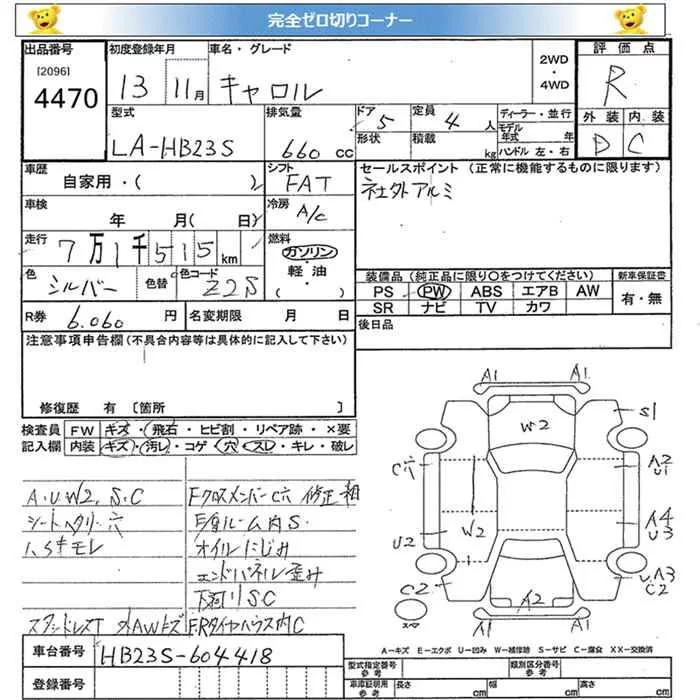 完全ゼロ切りコーナー
出品番号 初度登録年月 車名・グレード 2WD・4WD 評価点
[2096]
4470 13 11月 キャロル R
型式 排気量 ドア 5 定員 4人 ディーラー・並行 外装 内装
形状 積載 kg モデル年式 年
LA-HB23S 660cc ハンドル 左・右 D C
車歴 シフト セールスポイント (正常に機能するものに限ります)
自家用・( ) FAT 社外アルミ
車検 冷房
年 月( 日) A/C
走行 燃料
7万1千515km ガソリン
色 色替 色コード 軽油
シルバー Z2S ( )
装備品 (純正品に限り○をつけてください) 新車保証書
PS PW ABS エアB AW 有・無
SR ナビ TV カワ
R券 6.060円 名変期限 月 日 後日品
注意事項申告欄 (不具合内容等は具体的に記入して下さい)
修復歴 有 [箇所 ]
検査員 FW キズ・飛石・ヒビ割・リペア跡・×要
記入欄 内装 キズ・汚レ・コゲ・穴・スレ・キレ・破レ
A.U.W2.S.C FクロスメンバーC穴 修正
シートヘタリ・穴 内S.
モレ オイルにじみ
エンドパネル歪み
下廻りSC
スタッドレスT 外AWキズ F.Rタイヤハウス内C
A1 A1
W2 S1
C穴 A2
U1
W2
U2 A4
U3
C2 A3
C2
A2
スペア A1 A1
A-キズ E-エクボ U-凹み W-補修跡 S-サビ C-腐食 XX-交換済
車台番号 HB23S-604418
登録番号
型式指定番号 類別区分番号
車庫証明用参考 長さ cm 幅 cm 高さ cm